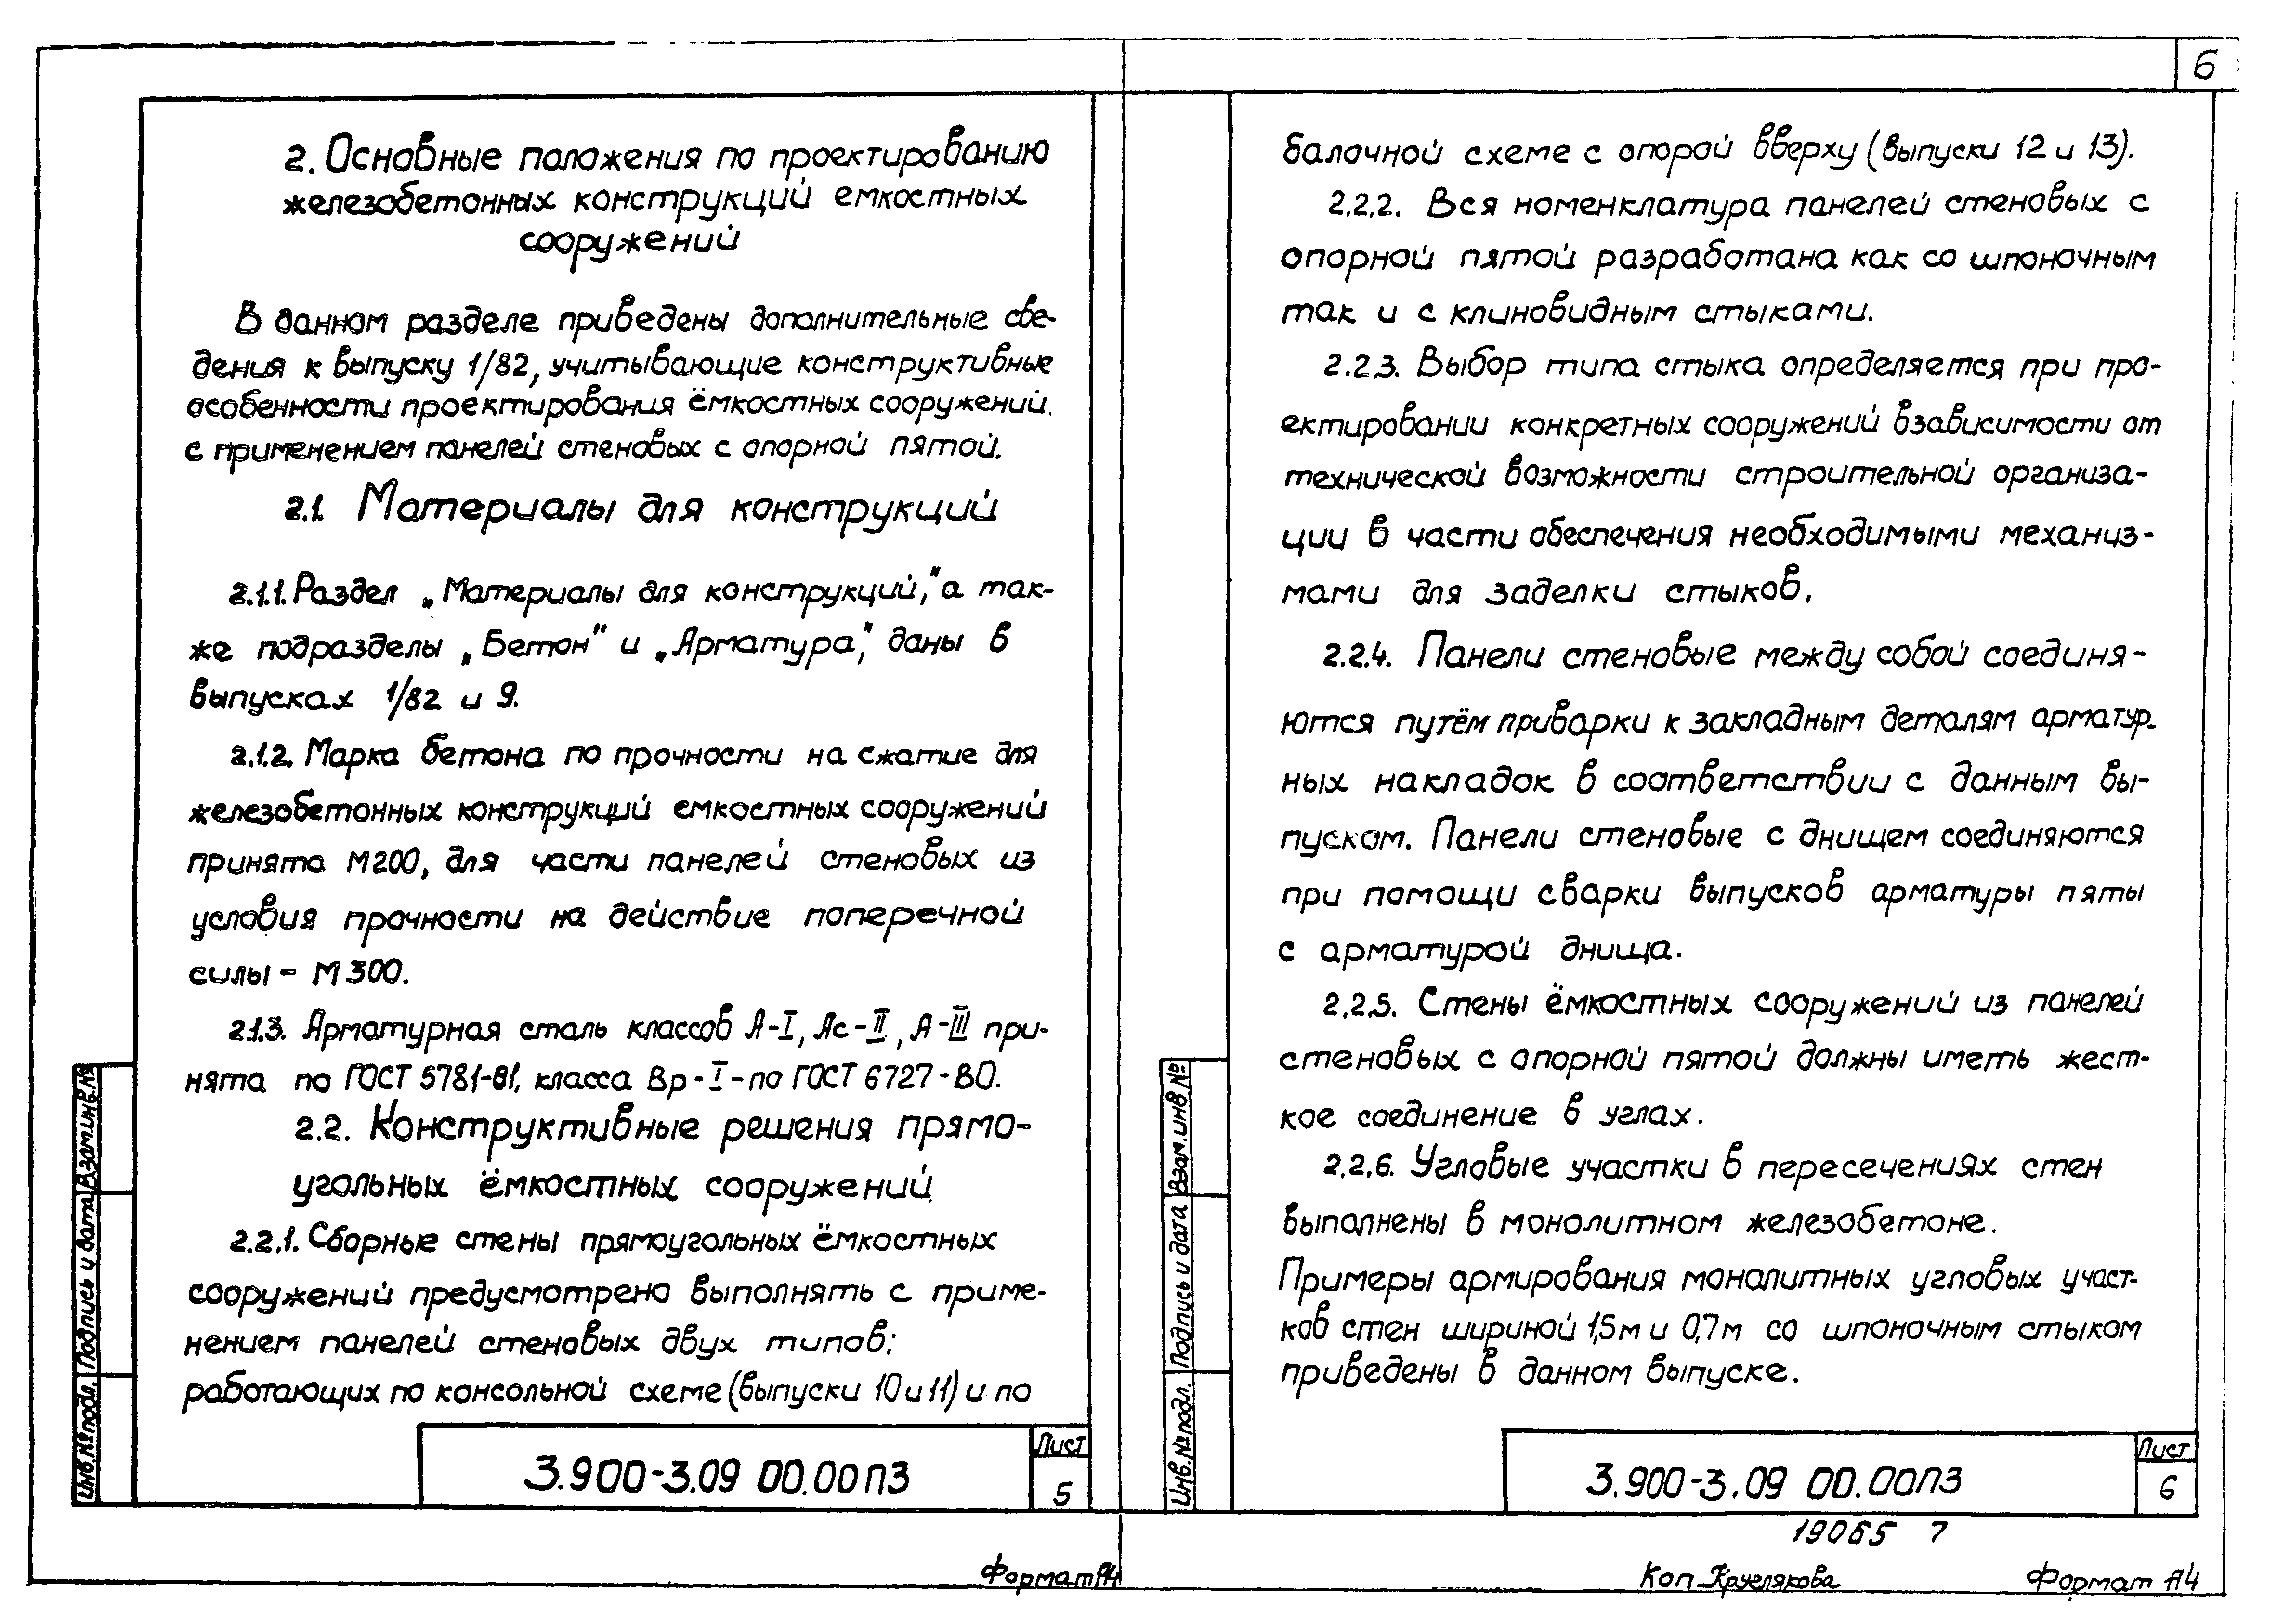 6
2. Основные положения по проектированию
железобетонных конструкций емкостных
сооружений
В данном разделе приведены дополнительные све-
дения к выпуску 1/82, учитывающие конструктивные
особенности проектирования ёмкостных сооружений.
с применением панелей стеновых с опорной пятой.
2.1. Материалы для конструкций
2.1.1. Раздел „Материалы для конструкций," а так-
же подразделы „Бетон" и „Арматура", даны в
выпусках 1/82 и 9.
2.1.2. Марка бетона по прочности на сжатие для
железобетонных конструкций емкостных сооружений
принята М200, для части панелей стеновых из
условия прочности на действие поперечной
силы - М300.
2.1.3. Арматурная сталь классов А-I, Ас-II, А-III при-
нята по ГОСТ 5781-81, класса Вр-I-по ГОСТ 6727-80.
2.2. Конструктивные решения прямо-
угольных ёмкостных сооружений.
2.2.1. Сборные стены прямоугольных ёмкостных
сооружений предусмотрено выполнять с приме-
нением панелей стеновых двух типов:
работающих по консольной схеме (выпуски 10 и 11) и по
3.900-3.09 00.00ПЗ
Лист
5
Инв.№подл. Подпись и дата Взам.инв.№
Формат А4
балочной схеме с опорой вверху (выпуски 12 и 13).
2.2.2. Вся номенклатура панелей стеновых с
опорной пятой разработана как со шпоночным
так и с клиновидным стыками.
2.2.3. Выбор типа стыка определяется при про-
ектировании конкретных сооружений взависимости от
технической возможности строительной организа-
ции в части обеспечения необходимыми механиз-
мами для заделки стыков.
2.2.4. Панели стеновые между собой соединя-
ются путём приварки к закладным деталям арматур-
ных накладок в соответствии с данным вы-
пуском. Панели стеновые с днищем соединяются
при помощи сварки выпусков арматуры пяты
с арматурой днища.
2.2.5. Стены ёмкостных сооружений из панелей
стеновых с опорной пятой должны иметь жест-
кое соединение в углах.
2.2.6. Угловые участки в пересечениях стен
выполнены в монолитном железобетоне.
Примеры армирования монолитных угловых участ-
ков стен шириной 1,5м и 0,7м со шпоночным стыком
приведены в данном выпуске.
3.900-3.09 00.00ПЗ
Лист
6
Инв.№подл. Подпись и дата Взам.инв.№
19065 7
Коп. Формат А4